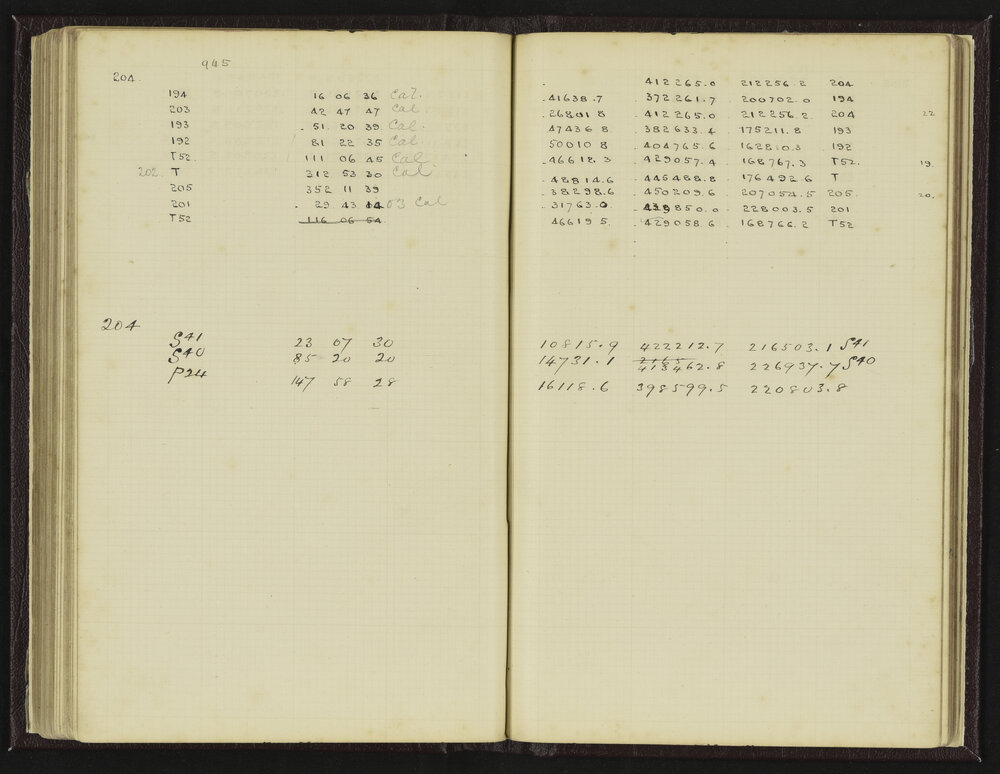 945
204.
194 16 06 36 Cal.
203 42 47 47 Cal
193 . 51 20 39 Cal.
192 81 22 35 Cal
T52. 111 06 45 Cal
202. T 312 53 30 Cal
205 352 11 39
201 . 29 43 03 Cal
T52 116 06 54
204
S41 23 07 30
S40 85 20 20
P24 147 58 28
. 412265.0 212256.2 204
.41638.7 .372261.7 .200702.0 194
.26801 8 .412265.0 .212256.2 204 22
47436 8 .382633.4 175211.8 193
50010 8 .404765.6 .162810.3 192
.46618.3 .429057.4 .168767.3 T52. 19.
.48814.6 .445488.8 .176492 6 T
.38298.6 .450209.6 .207054.5 205. 20.
.31763.0. .438850.0 .228003.5 201
46619 5. .429058.6 .168766.2 T52
10815.9 422212.7 216503.1 S41
14731.1 413462.8 226937.7 S40
16118.6 398599.5 220803.8